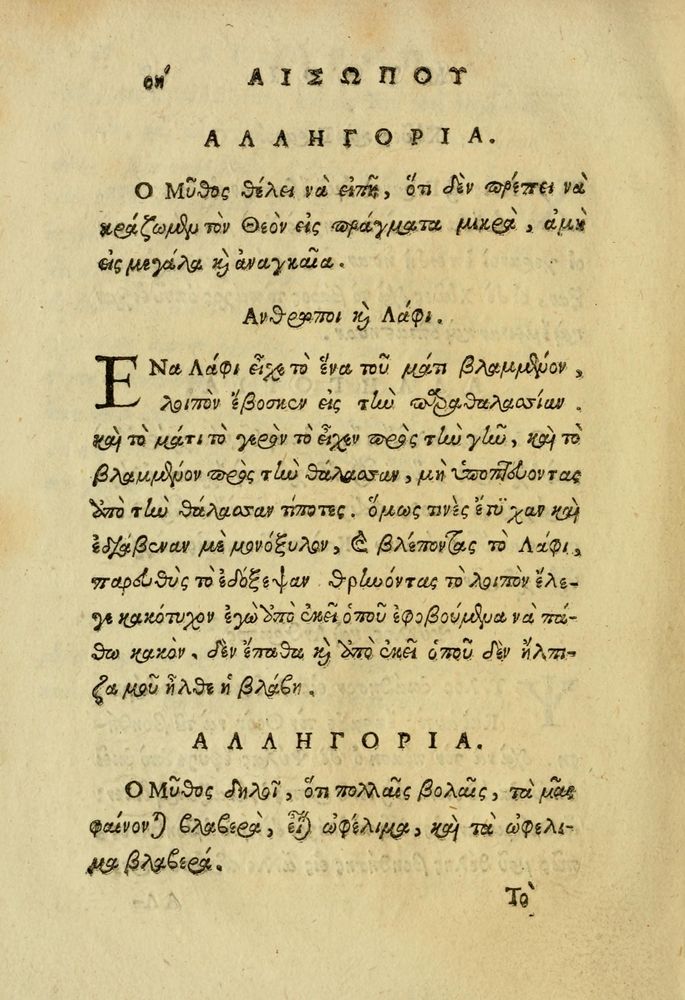 οη΄ ΑΙΣΩΠΟΥ
ΑΛΛΗΓΟΡΙΑ.
Ο Μῦθος θέλει νὰ εἰπῇ, ὅτι δὲν πρέπει νὰ
κράζωμεν τὸν Θεὸν εἰς πράγματα μικρὰ, ἀμὴ
εἰς μεγάλα καὶ ἀναγκαῖα.
Ανθρωποι καὶ Λάφι.
ΕΝα Λάφι εἶχε τὸ ἕνα τοῦ μάτι βλαμμένον,
λοιπὸν ἔβοσκεν εἰς τὴν παραθαλασσίαν.
καὶ τὸ μάτι τὸ γερὸν τὸ εἶχεν πρὸς τὴν γῆν, καὶ τὸ
βλαμμένον πρὸς τὴν θάλασσαν, μὴ ὑποπτεύοντας
ἀπὸ τὴν θάλασσαν τίποτες. ὅμως τινὲς ἔτυχαν καὶ
ἐδιάβεναν μὲ μονόξυλον, καὶ βλέποντας τὸ Λάφι,
παρευθὺς τὸ ἐδόξεψαν θρηνώντας τὸ λοιπὸν ἔλε-
γε κακότυχον ἐγὼ ἀπὸ ἐκεῖ ὁποῦ ἐφοβούμενα νὰ πά-
θω κακὸν, δὲν ἔπαθα καὶ ἀπὸ ἐκεῖ ὁποῦ δὲν ἤλπι-
ζα μοῦ ἦλθε ἡ βλάβη.
ΑΛΛΗΓΟΡΙΑ.
Ο Μῦθος δηλοῖ, ὅτι πολλαῖς βολαῖς, τὰ μᾶς
φαίνονται βλαβερὰ, εἶναι ὠφέλιμα, καὶ τὰ ὠφελι-
μα βλαβερά.
Τὸ